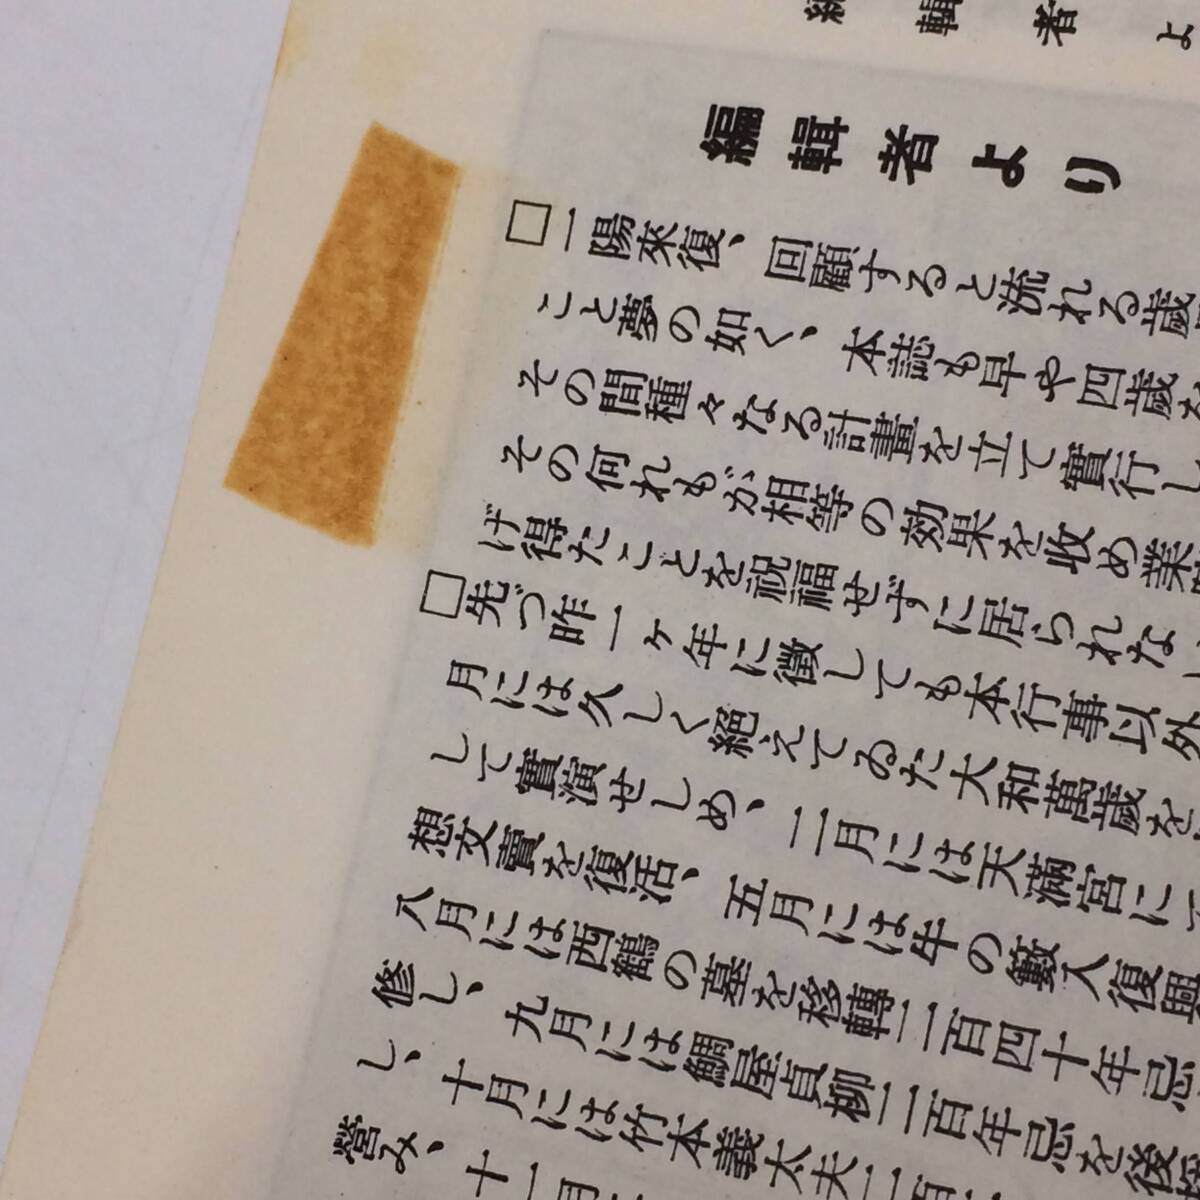 編輯者よ
編輯者より
□一陽來復、回顧すると流れる歲
こと夢の如く、本誌も早や四歲を
その間種々なる計畫を立て實行し
その何れもが相等の効果を收め業
げ得たことを祝福せずに居られない
□先づ昨一ヶ年に徵しても本行事以外
月には久しく絕えてゐた大和萬歲を
して實演せしめ、二月には天滿宮に
想文賣を復活、五月には牛の藪入復興
八月には西鶴の墓を移轉二百四十年忌
修し、九月には鯛屋貞柳二百年忌を後
し、十月には竹本義太夫二百
營み、十一月